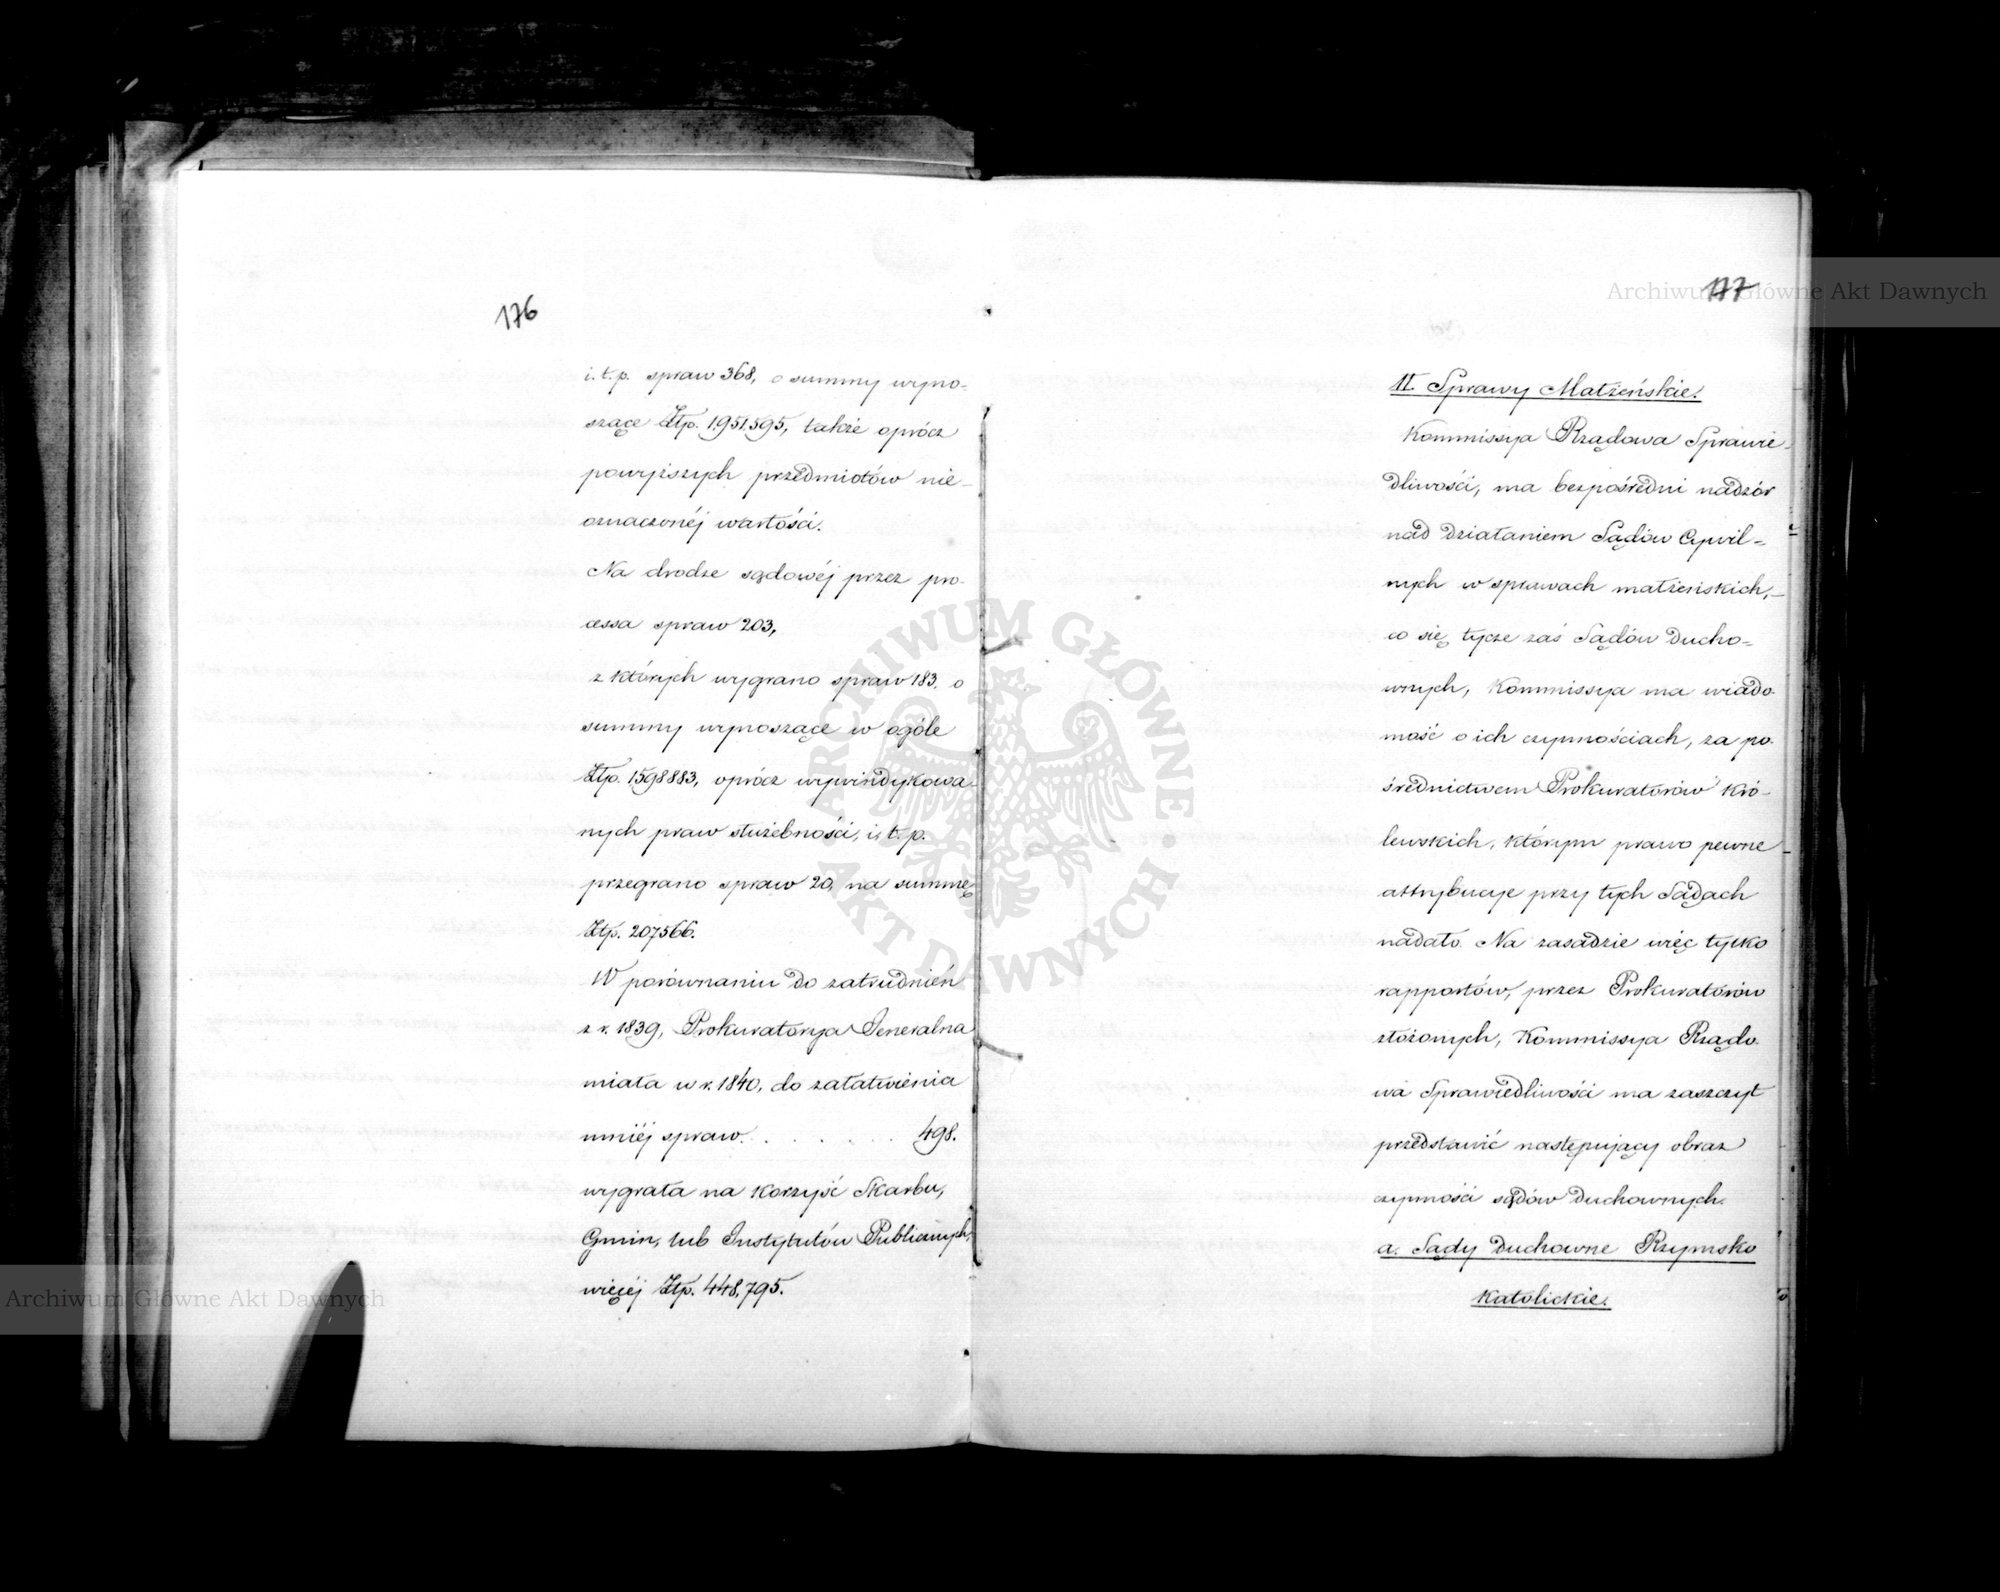 176
i.t.p. spraw 368, o summy wyno-
szące Złp. 1,951,595, także oprócz
powyższych przedmiotów nie-
oznaczonéj wartości.
Na drodze sądowéj przez pro-
cessa spraw 203,
z których wygrano spraw 183, o
summy wynoszące w ogóle
Złp. 1598883, oprócz wywindykowa-
nych praw służebności, i, t. p.
przegrano spraw 20, na summę
Złp. 207566.
W porównaniu do zatrudnień
z r. 1839, Prokuratorya Jeneralna
miała w r. 1840, do załatwienia
mniéj spraw . . . . . . 498.
wygrała na korzyść Skarbu,
Gmin, lub Instytutów Publicznych,
więcéj Złp. 448,795.
177
II. Sprawy Małżeńskie.
Kommissya Rządowa Sprawie-
dliwości, ma bezpośredni nadzór
nad działaniem Sądów Cywil=
nych w sprawach małżeńskich,
co się tycze zaś Sądów Ducho=
wnych, Kommissya ma wiado-
mość o ich czynnościach, za po-
średnictwem Prokuratorów Kró-
lewskich, którym prawo pewne
attrybucye przy tych Sądach
nadało. Na zasadzie więc tylko
rapportów, przez Prokuratorów
złożonych, Kommissya Rządo-
wa Sprawiedliwości ma zaszczyt
przedstawić następujący obraz
czynności sądów duchownych.
a. Sądy Duchowne Rzymsko
Katolickie.
Archiwum Główne Akt Dawnych
Archiwum Główne Akt Dawnych
ARCHIWUM GŁÓWNE · AKT DAWNYCH ·